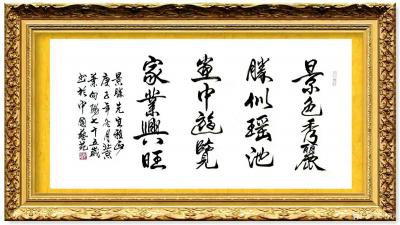 景色秀麗
勝似瑤池
畫中遊覽
家業興旺
景勝先生雅正
庚子年冬月
葉向陽七十五歲
書於中國藝苑